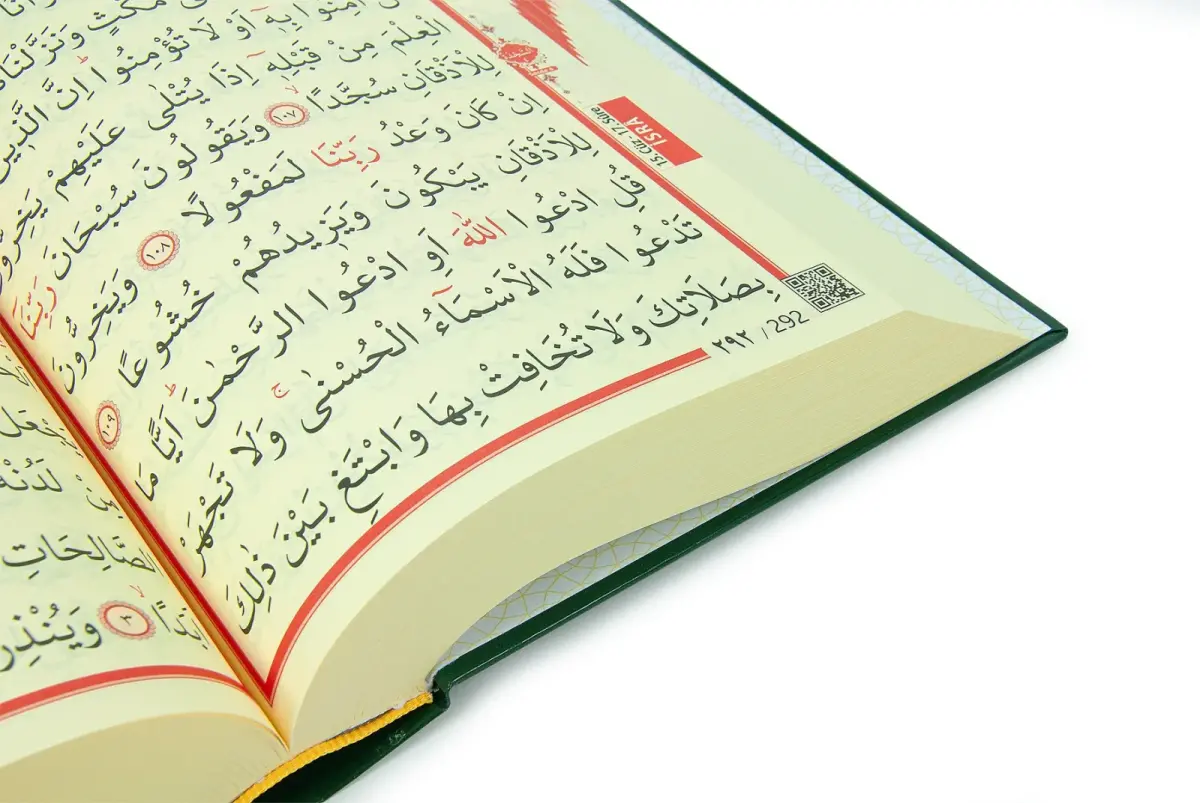 مُكْثٍ وَنَزَّلْنَاهُ
اٰمِنُوا بِه۪ٓ اَوْ لَا تُؤْمِنُوا اِنَّ الَّذ۪ينَ
الْعِلْمَ مِنْ قَبْلِه۪ٓ اِذَا يُتْلٰى عَلَيْهِمْ يَخِرُّونَ
لِلْاَذْقَانِ سُجَّدًا ١٠٧ وَيَقُولُونَ سُبْحَانَ رَبِّنَٓا
اِنْ كَانَ وَعْدُ رَبِّنَا لَمَفْعُولًا ١٠٨ وَيَخِرُّونَ
لِلْاَذْقَانِ يَبْكُونَ وَيَز۪يدُهُمْ خُشُوعًا ١٠٩
قُلِ ادْعُوا اللّٰهَ اَوِ ادْعُوا الرَّحْمٰنَ اَيًّا مَا
تَدْعُوا فَلَهُ الْاَسْمَٓاءُ الْحُسْنٰى ج وَلَا تَجْهَرْ
بِصَلَاتِكَ وَلَا تُخَافِتْ بِهَا وَابْتَغِ بَيْنَ ذٰلِكَ
15. Cüz - 17. Sûre
İSRÂ
٢٩٢ / 292
يَجْعَلْ
مِنْ لَدُنْهُ
الصَّالِحَاتِ
اَبَدًا ٣ وَيُنْذِرَ